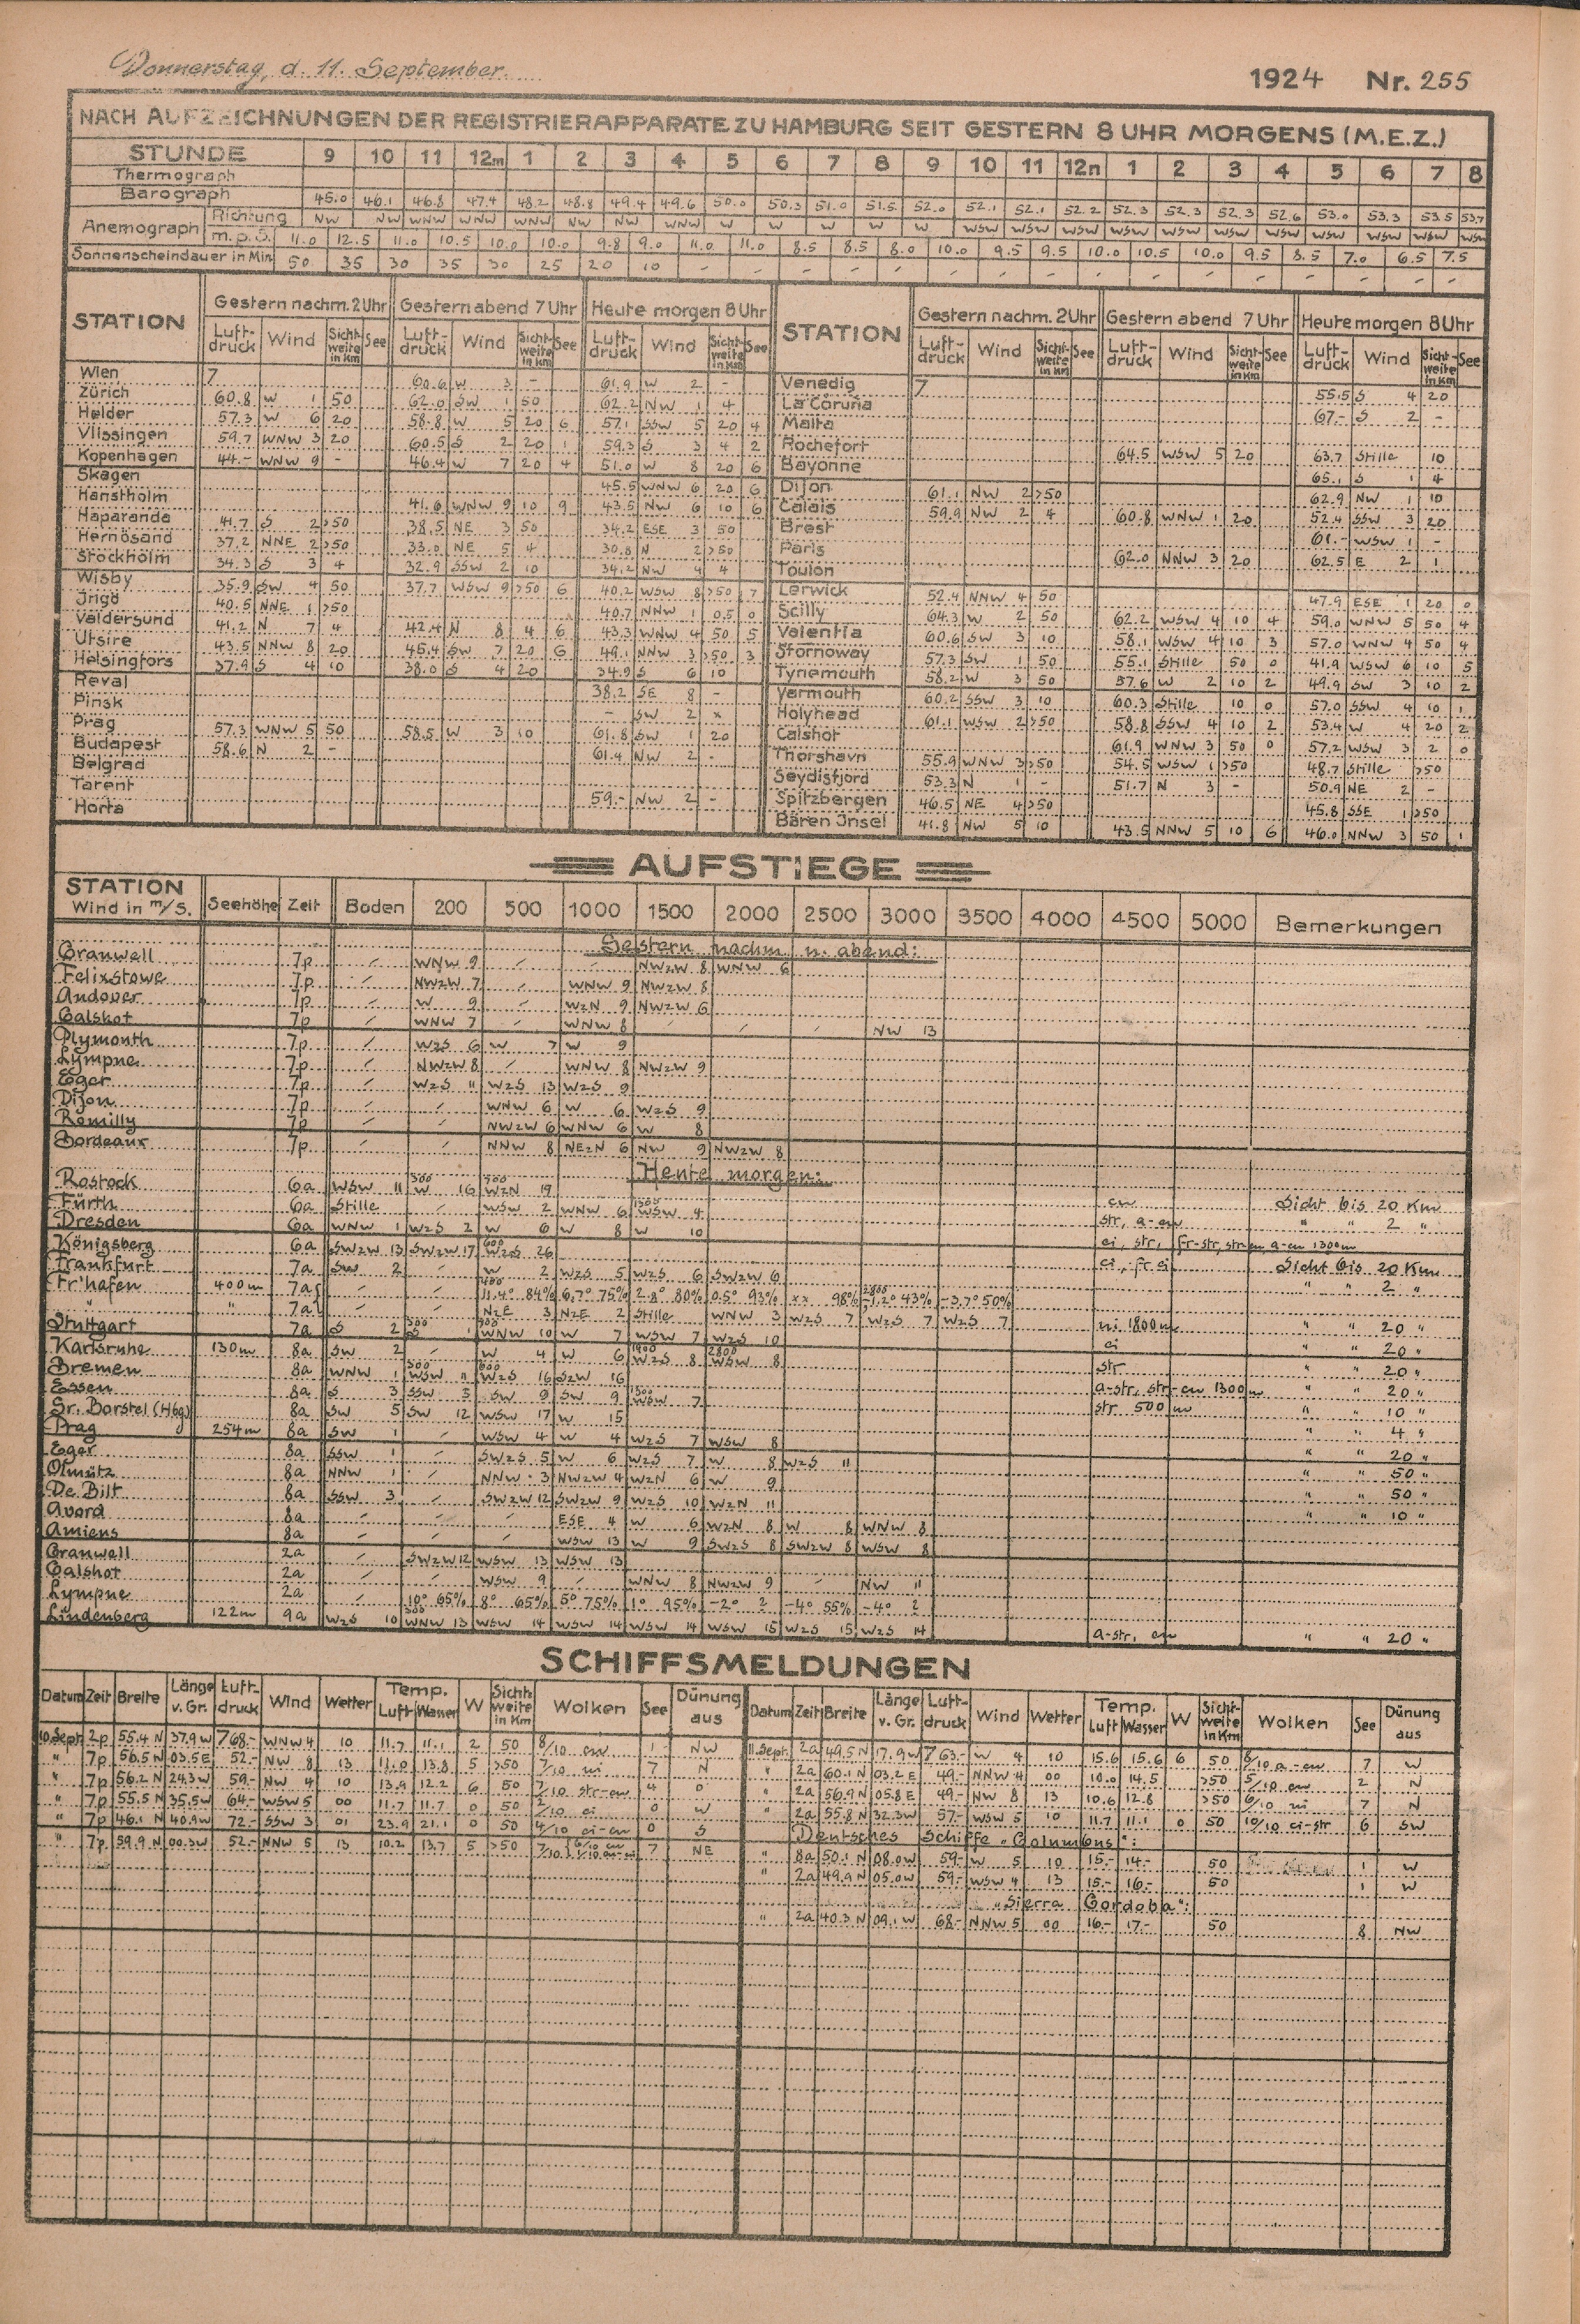 Donnerstag, d. 11. September. 1924 Nr. 255
NACH AUFZEICHNUNGEN DER REGISTRIERAPPARATE ZU HAMBURG SEIT GESTERN 8 UHR MORGENS (M.E.Z.)
STUNDE 9 10 11 12m 1 2 3 4 5 6 7 8 9 10 11 12n 1 2 3 4 5 6 7 8
Thermograph
Barograph 45.0 46.1 46.8 47.4 48.2 48.8 49.4 49.6 50.0 50.3 51.0 51.5 52.0 52.1 52.1 52.2 52.3 52.3 52.3 52.6 53.0 53.3 53.5 53.7
Anemograph Richtung NW NW WNW WNW WNW NW NW WNW W W W W W WSW WSW WSW WSW WSW WSW WSW WSW WSW WSW WSW
m.p.S. 11.0 12.5 11.0 10.5 10.0 10.0 9.8 9.0 11.0 11.0 8.5 8.5 8.0 10.0 9.5 9.5 10.0 10.5 10.0 9.5 8.5 7.0 6.5 7.5
Sonnenscheindauer in Min 50 35 30 35 30 25 20 10 - - - - - - - - - - - - - - - -
STATION Gestern nachm. 2 Uhr Gestern abend 7 Uhr Heute morgen 8 Uhr STATION Gestern nachm. 2 Uhr Gestern abend 7 Uhr Heute morgen 8 Uhr
Luftdruck Wind Sichtweite in km See Luftdruck Wind Sichtweite in km See Luftdruck Wind Sichtweite in km See Luftdruck Wind Sichtweite in km See Luftdruck Wind Sichtweite in km See Luftdruck Wind Sichtweite in km See
Wien 7 60.6 W 3 - 61.9 W 2 - Venedig 7 55.5 S 4 20
Zürich 60.8 W 1 50 62.0 SW 1 50 62.2 NW 1 4 La Coruña 67.- S 2 -
Helder 57.3 W 6 20 58.8 W 5 20 6 57.1 SSW 5 20 4 Malta
Vlissingen 59.7 WNW 3 20 60.5 S 2 20 1 59.3 S 3 4 2 Rochefort 64.5 WSW 5 20 63.7 Stille 10
Kopenhagen 44.- WNW 9 - 46.4 W 7 20 4 51.0 W 8 20 6 Bayonne 65.1 S 1 4
Skagen 45.5 WNW 6 20 6 Dijon 61.1 NW 2 >50 62.9 NW 1 10
Hanstholm 41.6 WNW 9 10 9 43.5 NW 6 10 6 Calais 59.9 NW 2 4 60.8 WNW 1 20 52.4 SSW 3 20
Haparanda 41.7 S 2 >50 38.5 NE 3 50 34.2 ESE 3 50 Brest 61.- WSW 1 -
Hernösand 37.2 NNE 2 >50 33.0 NE 5 4 30.8 N 2 >50 Paris 62.0 NNW 3 20 62.5 E 2 1
Stockholm 34.3 S 3 4 32.9 SSW 2 10 34.2 NW 4 4 Toulon
Wisby 35.9 SW 4 50 37.7 WSW 9 >50 6 40.2 WSW 8 >50 7 Lerwick 52.4 NNW 4 50 47.9 ESE 1 20 0
Jngö 40.5 NNE 1 >50 40.7 NNW 1 0.5 0 Scilly 64.3 W 2 50 62.2 WSW 4 10 4 59.0 WNW 5 50 4
Valdersund 41.2 N 7 4 42.4 N 8 4 6 43.3 WNW 4 50 5 Valentia 60.6 SW 3 10 58.1 WSW 4 10 3 57.0 WNW 4 50 4
Utsire 43.5 NNW 8 20 45.4 SW 7 20 6 49.1 NNW 3 >50 3 Stornoway 57.3 SW 1 50 55.1 Stille 50 0 41.9 WSW 6 10 5
Helsingfors 37.9 S 4 10 38.0 S 4 20 34.9 S 6 10 Tynemouth 58.2 W 3 50 57.6 W 2 10 2 49.9 SW 3 10 2
Reval 38.2 SE 8 - Yarmouth 60.2 SSW 3 10 60.3 Stille 10 0 57.0 SSW 4 10 1
Pinsk - SW 2 x Holyhead 61.1 WSW 2 >50 58.8 SSW 4 10 2 53.4 W 4 20 2
Prag 57.3 WNW 5 50 58.5 W 3 10 61.8 SW 1 20 Calshot 61.9 WNW 3 50 0 57.2 WSW 3 2 0
Budapest 58.6 N 2 - 61.4 NW 2 - Thorshavn 55.9 WNW 3 >50 54.5 WSW 1 >50 48.7 Stille >50
Belgrad Seydisfjord 53.3 N 1 - 51.7 N 3 - 50.9 NE 2 -
Tarent 59.- NW 2 - Spitzbergen 46.5 NE 4 >50 45.8 SSE 1 >50
Horta Bären Jnsel 41.8 NW 5 10 43.5 NNW 5 10 6 46.0 NNW 3 50 1
AUFSTIEGE
STATION Wind in m/S. Seehöhe Zeit Boden 200 500 1000 1500 2000 2500 3000 3500 4000 4500 5000 Bemerkungen
Gestern nachm. u. abend:
Cranwell 7p - WNW 9 - - NWzW 8 WNW 6
Felixstowe 7p - NWzW 7 - WNW 9 NWzW 8
Andover 7p - W 9 - WzN 9 NWzW 6
Calshot 7p - WNW 7 - WNW 8 - - - NW 13
Plymouth 7p - WzS 6 W 7 W 9
Lympne 7p - NWzW 8 - WNW 8 NWzW 9
Eger 7p - WzS 11 WzS 13 WzS 9
Dijon 7p - - WNW 6 W 6 WzS 9
Romilly 7p - - NWzW 6 WNW 6 W 8
Bordeaux 7p - - NNW 8 NEzN 6 NW 9 NWzW 8
Heute morgen:
Rostock 6a WSW 11 300 W 16 900 WzN 19 cu Sicht bis 20 Km
Fürth 6a Stille - WSW 2 WNW 6 1300 WSW 4 str, a-cu " " 2 "
Dresden 6a WNW 1 WzS 2 W 6 W 8 W 10 ci, str, fr-str, str-cu a-cu 1300m
Königsberg 6a SWzW 13 SWzW 17 600 WzS 26 ci, fr. ci Sicht bis 20 Km
Frankfurt 7a SW 2 - W 2 WzS 5 WzS 6 SWzW 6 " " 2 "
Fr'hafen 400m 7a - - 400 11.4° 84% 6.7° 75% 2.8° 80% 0.5° 93% xx 98% 2800 -1.2° 43% -3.7° 50%
" " 7a - - NzE 3 NzE 2 Stille WNW 3 WzS 7 WzS 7 WzS 7 ni 1800m " " 20 "
Stuttgart 7a S 2 300 S 1 900 WNW 10 W 7 WSW 7 WzS 10 ci " " 20 "
Karlsruhe 130m 8a SW 2 - W 4 W 6 1900 WzS 8 2800 WSW 8 str " " 20 "
Bremen 8a WNW 1 300 WSW 11 600 WzS 16 SzW 16 a-str, str-cu 1300m " " 20 "
Essen 8a S 3 SSW 3 SW 9 SW 9 1300 WSW 7 str 500m " " 10 "
Gr. Borstel (Hbg) 8a SW 5 SW 12 WSW 17 W 15 " " 4 "
Prag 254m 8a SW 1 - WSW 4 W 4 WzS 7 WSW 8 " " 20 "
Eger 8a SSW 1 - SWzS 5 W 6 WzS 7 W 8 WzS 11 " " 50 "
Olmütz 8a NNW 1 - NNW 3 NWzW 4 WzN 6 W 9 " " 50 "
De Bilt 8a SSW 3 - SWzW 12 SWzW 9 WzS 10 WzN 11 " " 10 "
Avord 8a - - - ESE 4 W 6 WzN 8 W 8 WNW 8
Amiens 8a - - - WSW 13 W 9 SWzS 8 SWzW 8 WSW 8
Cranwell 2a - SWzW 12 WSW 13 WSW 13
Calshot 2a - - WSW 9 - WNW 8 NWzW 9 - NW 11
Lympne 2a - 10° 65% 8° 65% 5° 75% 1° 95% -2° 2 -4° 55% -4° 2
Lindenberg 122m 9a WzS 10 300 WNW 13 WSW 14 WSW 14 WSW 14 WSW 15 WzS 15 WzS 14 a-str, cu " " 20 "
SCHIFFSMELDUNGEN
Datum Zeit Breite Länge v. Gr. Luftdruck Wind Wetter Temp. Luft Wasser W Sichtweite in Km Wolken See Dünung aus Datum Zeit Breite Länge v. Gr. Luftdruck Wind Wetter Temp. Luft Wasser W Sichtweite in Km Wolken See Dünung aus
10. Sept. 2p 55.4 N 37.9 W 768.- WNW 4 10 11.7 11.1 2 50 8/10 cu 1 NW 11. Sept. 2a 49.5 N 17.9 W 763.- W 4 10 15.6 15.6 6 50 8/10 a-cu 7 W
" 7p 56.5 N 03.5 E 52.- NW 8 13 11.0 13.8 5 >50 7/10 ni 7 N " 2a 60.1 N 03.2 E 49.- NNW 4 00 10.0 14.5 >50 5/10 cu 2 N
" 7p 56.2 N 24.3 W 59.- NW 4 10 13.9 12.2 6 50 7/10 str-cu 4 0 " 2a 56.9 N 05.8 E 49.- NW 8 13 10.6 12.8 >50 6/10 ni 7 N
" 7p 55.5 N 35.5 W 64.- WSW 5 00 11.7 11.7 0 50 2/10 ci 0 W " 2a 55.8 N 32.3 W 57.- WSW 5 10 11.7 11.1 0 50 10/10 ci-str 6 SW
" 7p 46.1 N 40.9 W 72.- SSW 3 01 23.9 21.1 0 50 4/10 ci-cu 0 S Deutsches Schiffe „Columbus":
" 7p 59.9 N 00.3 W 52.- NNW 5 13 10.2 13.7 5 >50 7/10 6/10 cu 1/10 cu-ni 7 NE " 8a 50.1 N 08.0 W 59.- W 5 10 15.- 14.- 50 1 W
" 2a 49.9 N 05.0 W 59.- WSW 4 13 15.- 16.- 50 1 W
„Sierra Cordoba":
" 2a 40.3 N 09.1 W 68.- NNW 5 00 16.- 17.- 50 8 NW